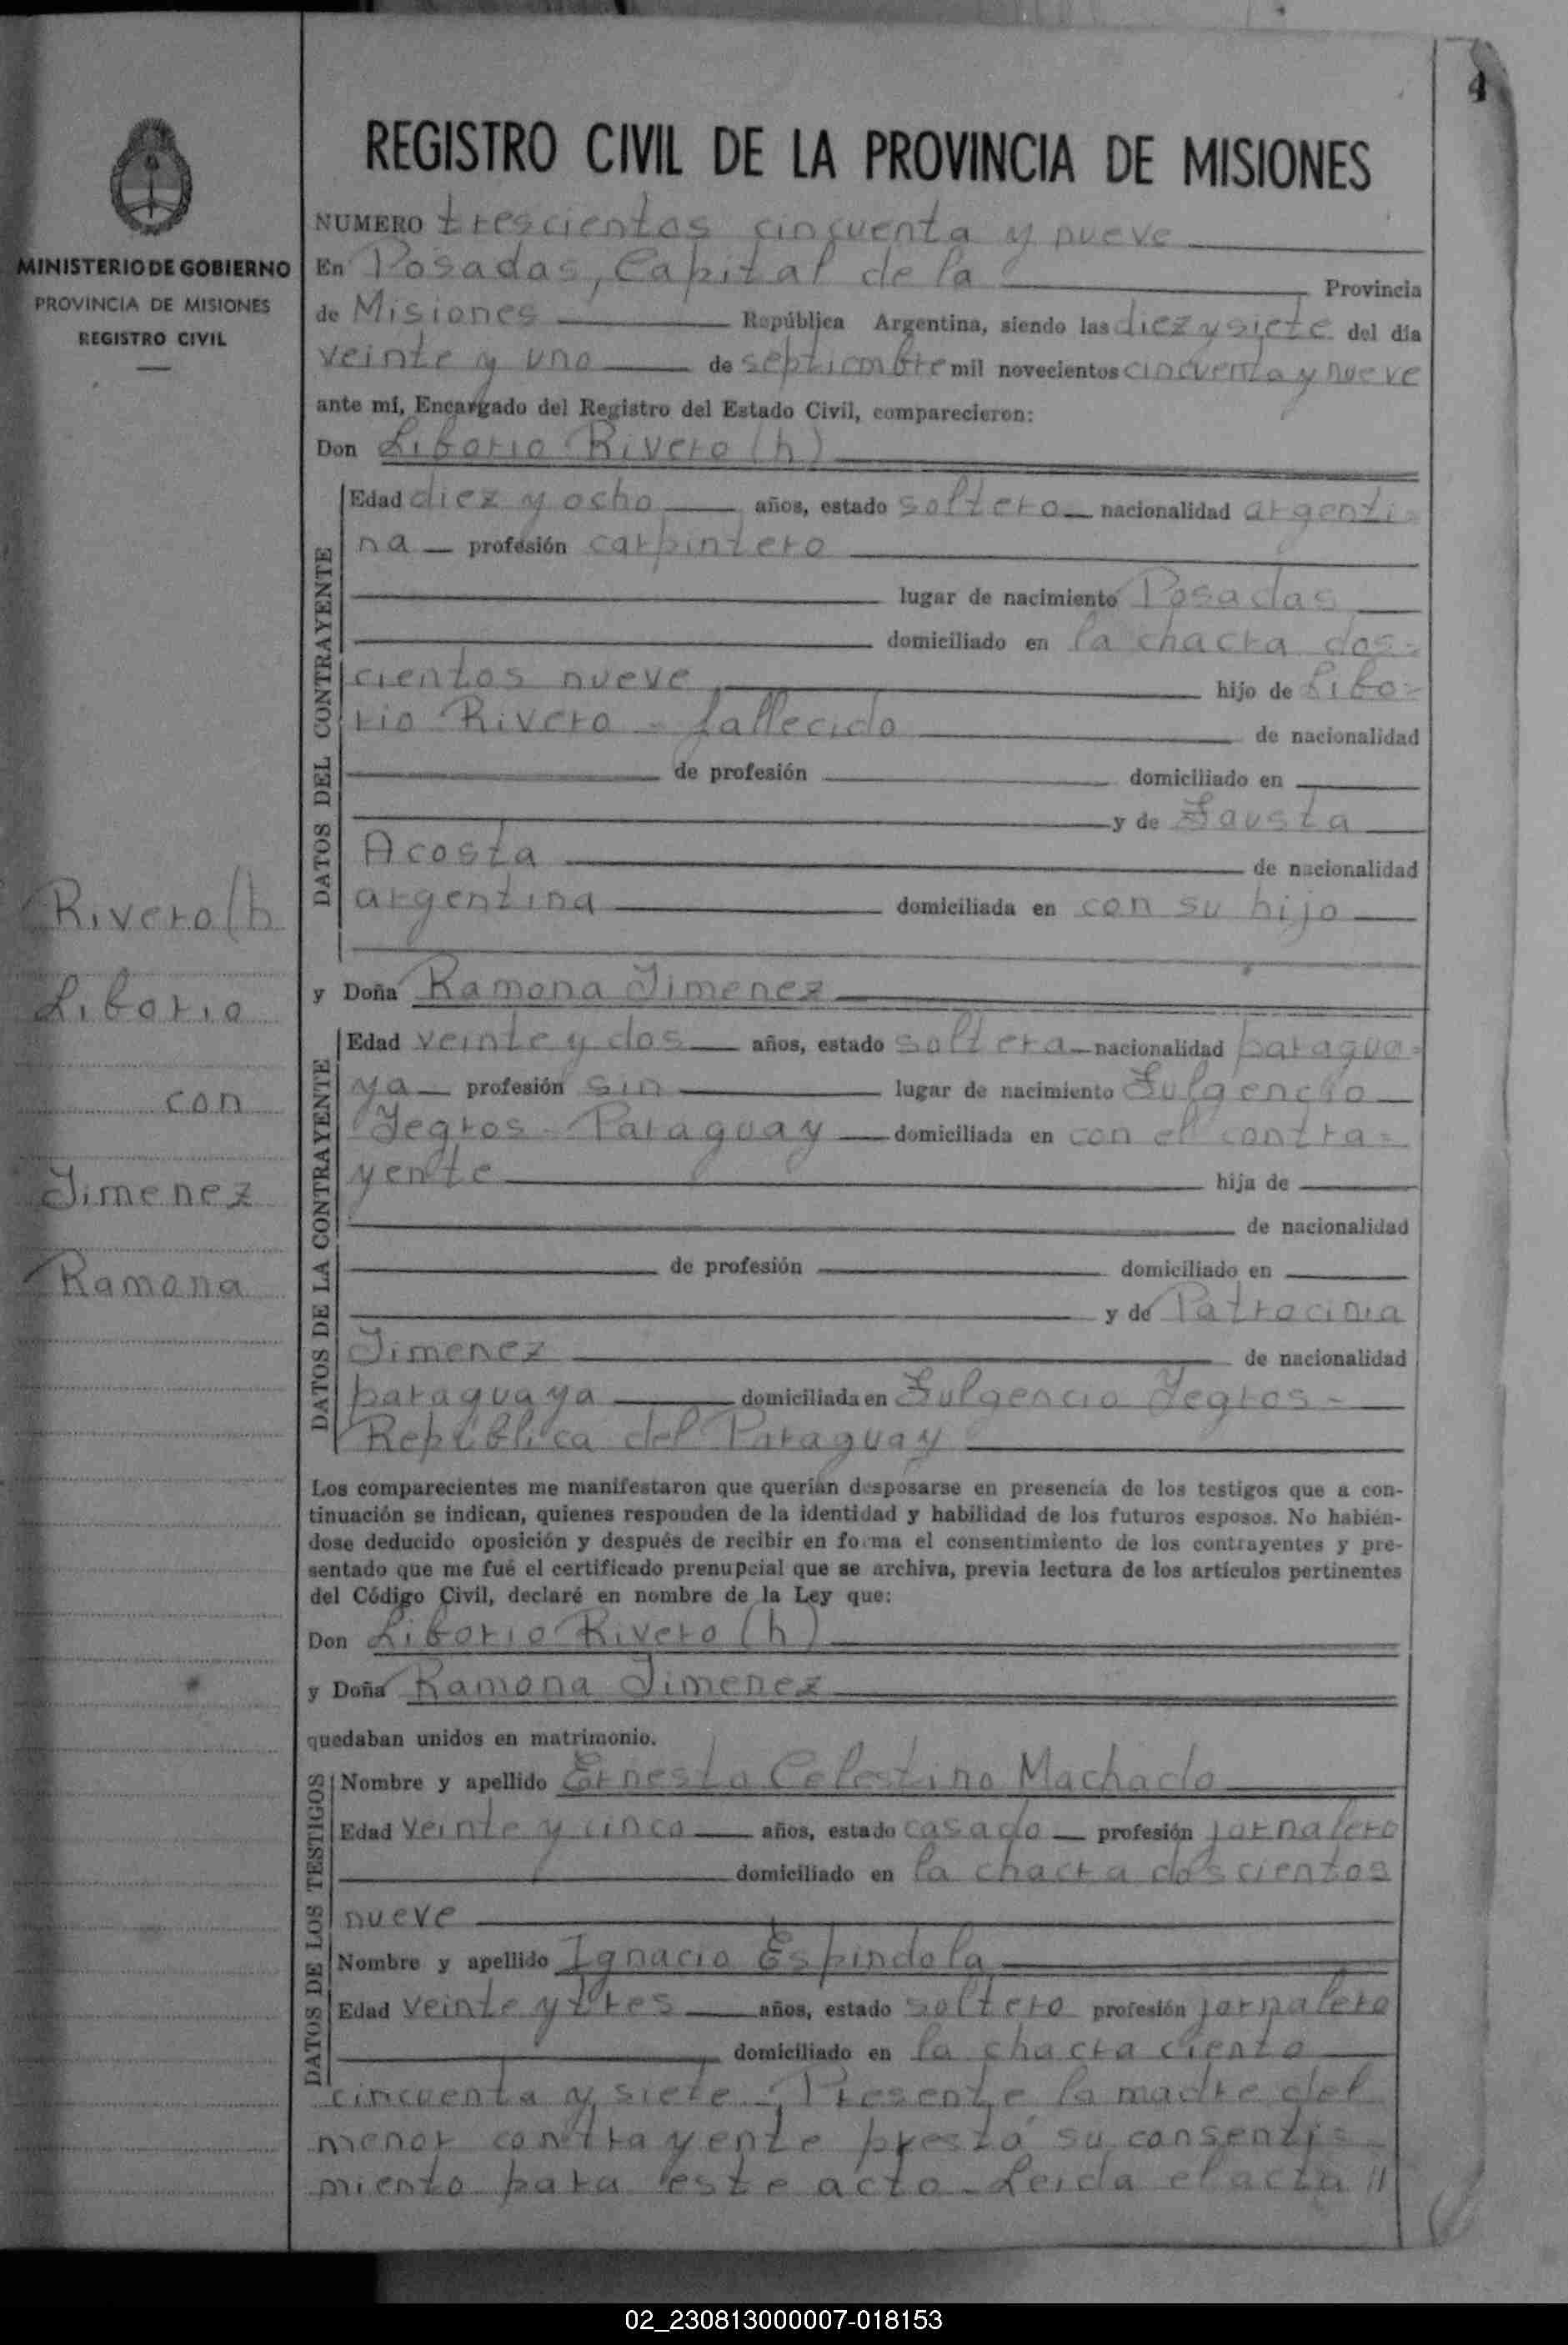 4
REGISTRO CIVIL DE LA PROVINCIA DE MISIONES
MINISTERIO DE GOBIERNO
PROVINCIA DE MISIONES
REGISTRO CIVIL
Rivero (h
Liborio
con
Jimenez
Ramona
NUMERO trescientos cincuenta y nueve
En Posadas, Capital de la Provincia
de Misiones República Argentina, siendo las diez y siete del día
veinte y uno de septiembre mil novecientos cincuenta y nueve
ante mí, Encargado del Registro del Estado Civil, comparecieron:
Don Liborio Rivero (h)
DATOS DEL CONTRAYENTE
Edad diez y ocho años, estado soltero nacionalidad argenti-
na profesión carpintero
lugar de nacimiento Posadas
domiciliado en la chacra dos-
cientos nueve hijo de Libo-
rio Rivero - fallecido de nacionalidad
de profesión domiciliado en
y de Fausta
Acosta de nacionalidad
argentina domiciliada en con su hijo
y Doña Ramona Jimenez
DATOS DE LA CONTRAYENTE
Edad veinte y dos años, estado soltera nacionalidad paragua-
ya profesión sin lugar de nacimiento Fulgencio
Yegros - Paraguay domiciliada en con el contra-
yente hija de
de nacionalidad
de profesión domiciliado en
y de Patrocinia
Jimenez de nacionalidad
paraguaya domiciliada en Fulgencio Yegros -
República del Paraguay
Los comparecientes me manifestaron que querían desposarse en presencia de los testigos que a con-
tinuación se indican, quienes responden de la identidad y habilidad de los futuros esposos. No habién-
dose deducido oposición y después de recibir en forma el consentimiento de los contrayentes y pre-
sentado que me fué el certificado prenupcial que se archiva, previa lectura de los artículos pertinentes
del Código Civil, declaré en nombre de la Ley que:
Don Liborio Rivero (h)
y Doña Ramona Jimenez
quedaban unidos en matrimonio.
DATOS DE LOS TESTIGOS
Nombre y apellido Ernesto Celestino Machado
Edad veinte y cinco años, estado casado profesión jornalero
domiciliado en la chacra doscientos
nueve
Nombre y apellido Ignacio Espindola
Edad veinte y tres años, estado soltero profesión jornalero
domiciliado en la chacra ciento
cincuenta y siete - Presente la madre del
menor contrayente prestó su consenti-
miento para este acto - Leida el acta //
02_230813000007-018153